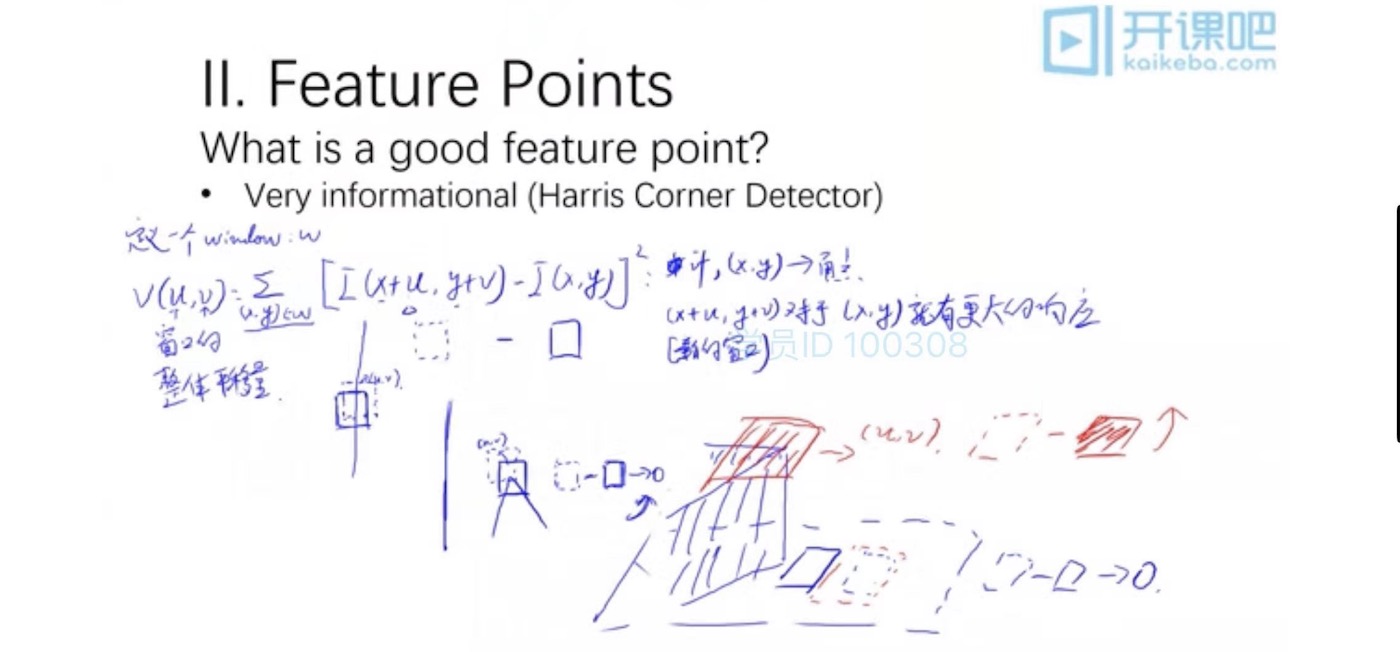 开课吧
kaikeba.com
II. Feature Points
What is a good feature point?
• Very informational (Harris Corner Detector)
定义一个window: w
V(u,v)=Σ [I(x+u, y+v)-I(x,y)]²:
(x,y)∈w
窗口的
整体平移量.
(x,y)→角点.
(x+u, y+v)对于 (x,y)就有更大的响应
[新的窗口]
学员ID 100308
(u,v)
(u,v)
→0
→(u,v).
→0.